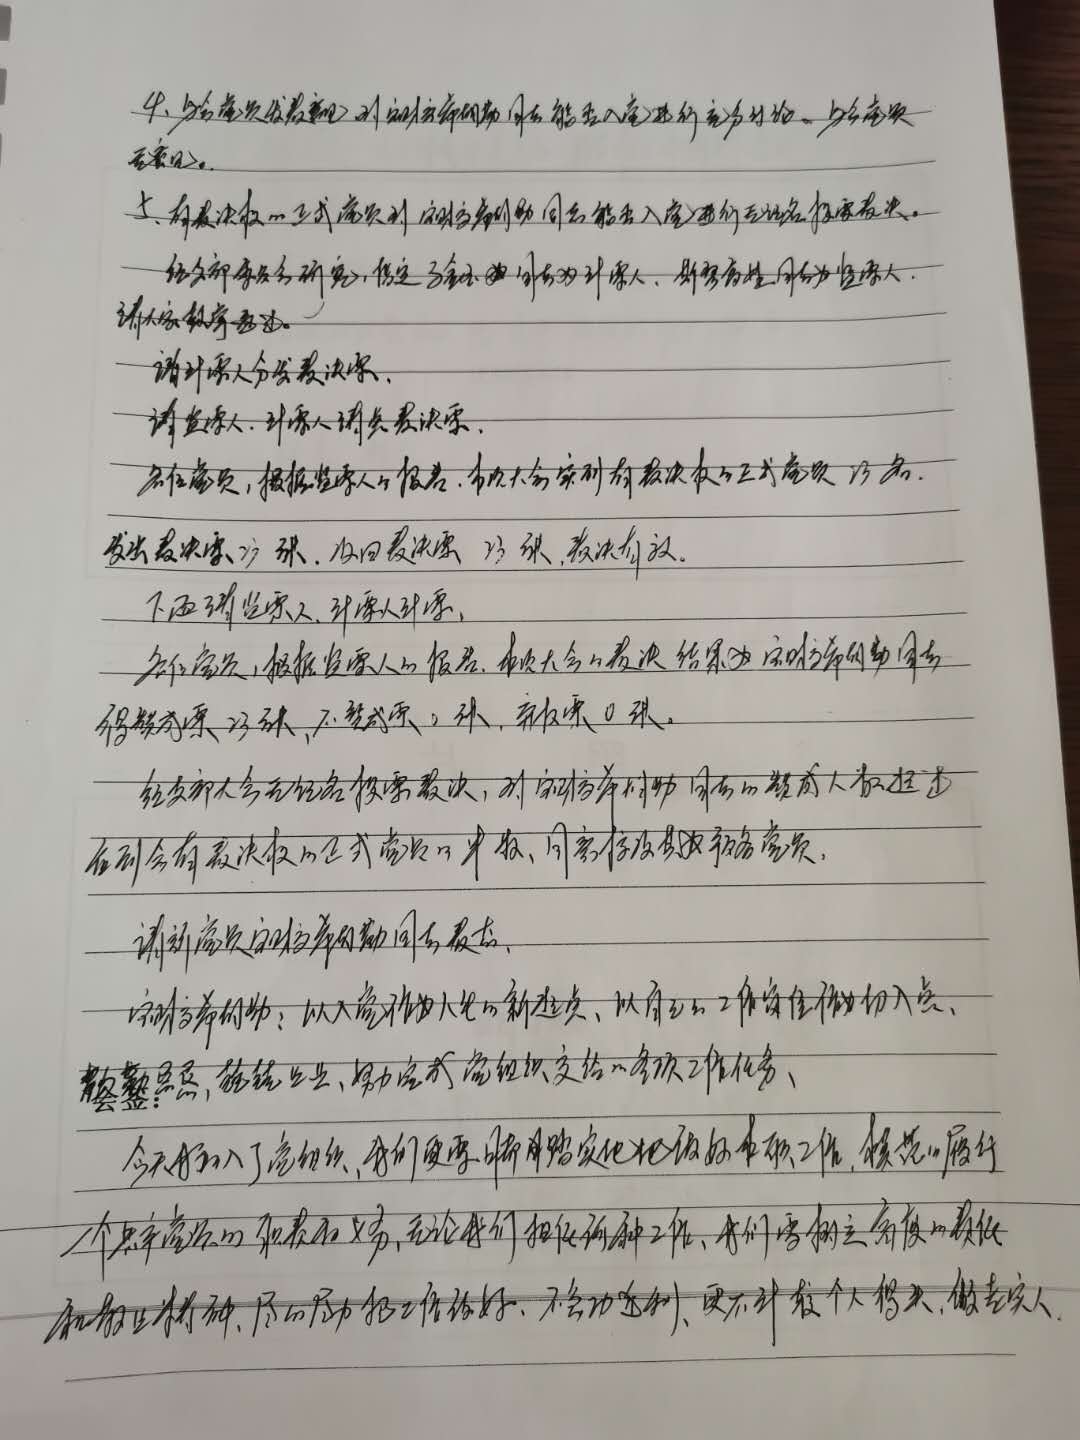 4、与会党员发表意见，对 同志能否入党进行充分讨论。与会党员
无意见。
5、有表决权的正式党员对 同志能否入党进行无记名投票表决。
经支部委员会研究，指定 同志为计票人、 同志为监票人.
请大家鼓掌通过。
请计票人分发表决票.
请监票人、计票人清点表决票.
各位党员，根据监票人的报告.本次大会实到有表决权的正式党员 23 名.
发出表决票23 张、收回表决票 23 张,表决有效。
下面请监票人、计票人计票,
各位党员，根据监票人的报告.本次大会的表决结果为 同志
得赞成票 23 张、不赞成票 0 张、弃权票 0 张。
经支部大会无记名投票表决，对 同志的赞成人数超过
应到会有表决权的正式党员的半数、同意接收其为预备党员.
请新党员 同志表态.
：以入党作为人生的新起点、以自己的工作岗位作为切入点、
勤勤恳恳,兢兢业业、努力完成党组织交给的各项工作任务、
今天我加入了党组织、我们更要脚踏实地地做好本职工作,模范的履行
一个共产党员的职责和义务、无论我们担任何种工作、我们需树立高度的责任
和敬业精神、尽心尽力把工作做好、不急功近利、更不计较个人得失,做老实人.